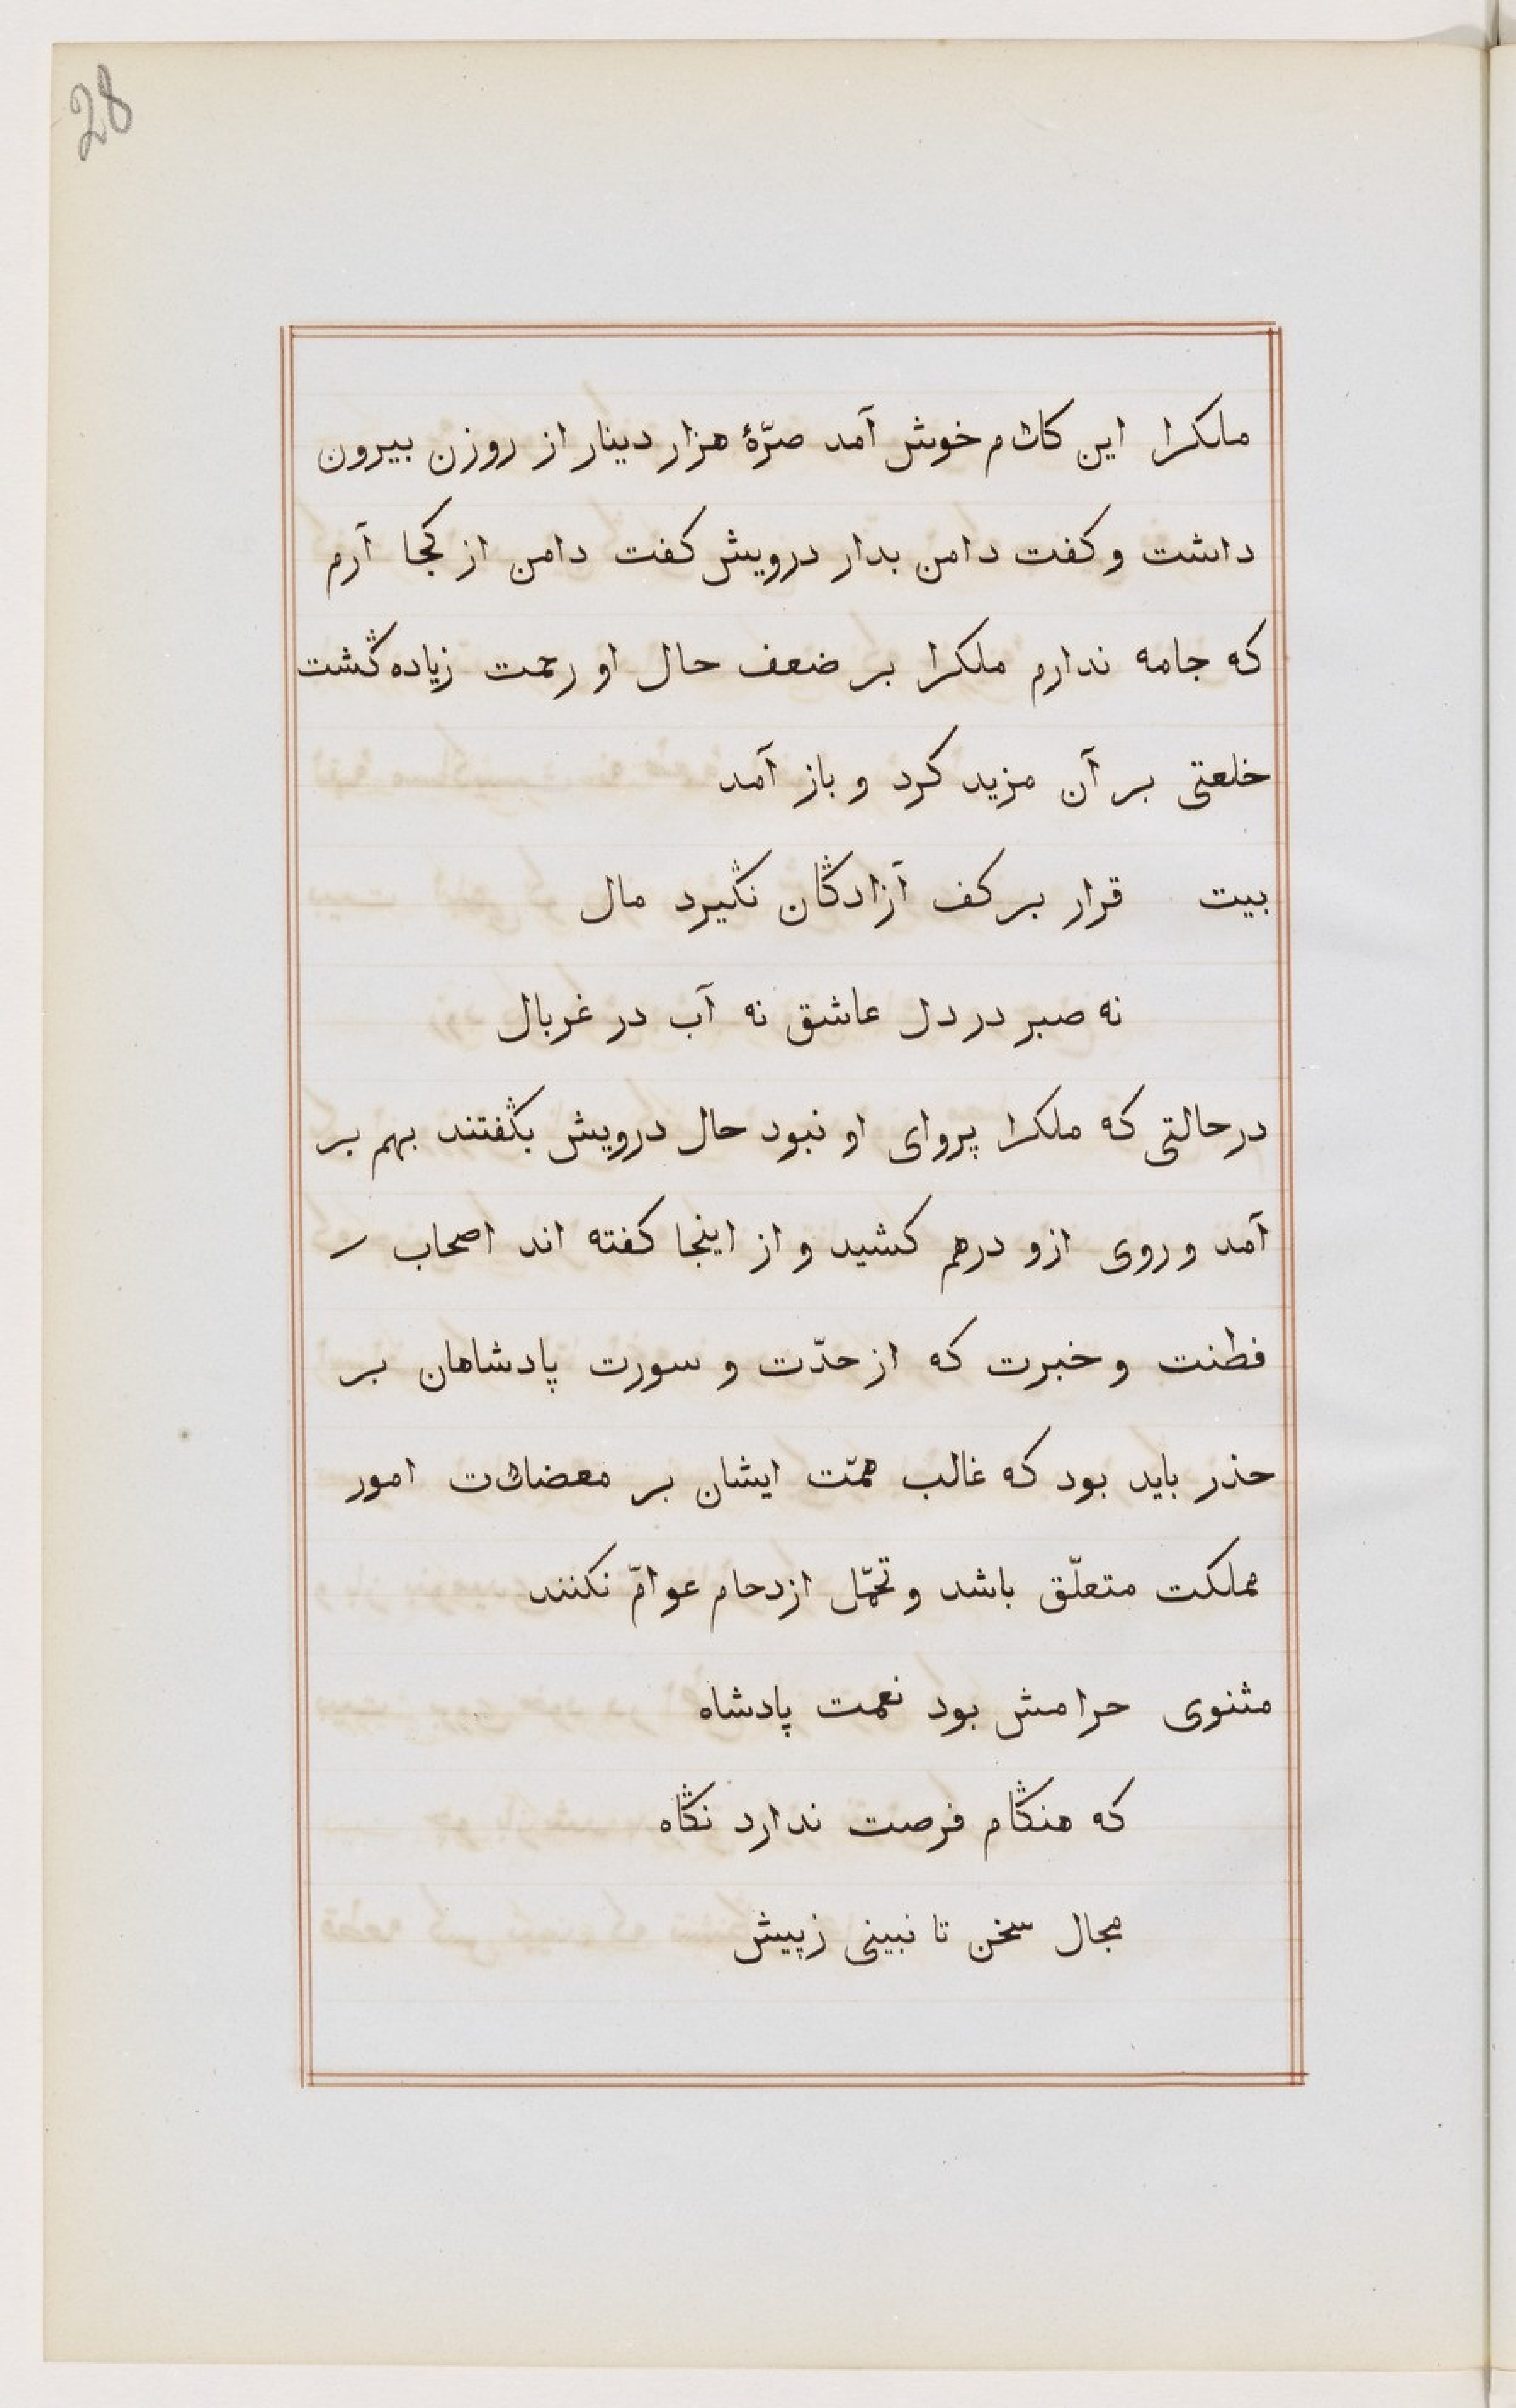 28
ملکرا این کلام خوش آمد صرّهٔ هزار دینار از روزن بیرون
داشت و کفت دامن بدار درویش کفت دامن از کجا آرم
که جامه ندارم ملکرا بر ضعف حال او رحمت زیاده گشت
خلعتی بر آن مزید کرد و باز آمد
بیت قرار بر کف آزادگان نگیرد مال
نه صبر در دل عاشق نه آب در غربال
در حالتی که ملکرا پروای او نبود حال درویش بگفتند بهم بر
آمد و روی ازو درهم کشید و از اینجا کفته اند اصحاب
فطنت و خبرت که از حدّت و سورت پادشاهان بر
حذر باید بود که غالب همّت ایشان بر معضلات امور
مملکت متعلّق باشد و تحمّل ازدحام عوامّ نکنند
مثنوی حرامش بود نعمت پادشاه
که هنگام فرصت ندارد نگاه
مجال سخن تا نبینی ز پیش